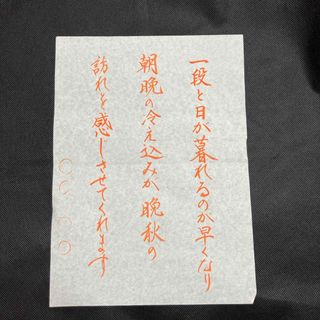 一段と日が暮れるのが早くなり
朝晩の冷え込みが晩秋の
訪れを感じさせてくれます